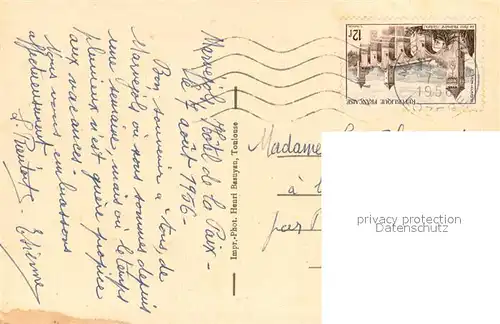 Marvejols, Hôtel de la Paix -
le 7 août 1956 -
Bon souvenir à tous, de
Marvejols où nous sommes depuis
une semaine, mais où le temps
pluvieux n'est guère propice
aux vacances -
Nous vous embrassons
affectueusement
Etienne
Impr.-Phot. Henri Basuyau, Toulouse
Madame
à
par
12F
RÉPUBLIQUE FRANÇAISE
195
privacy protection